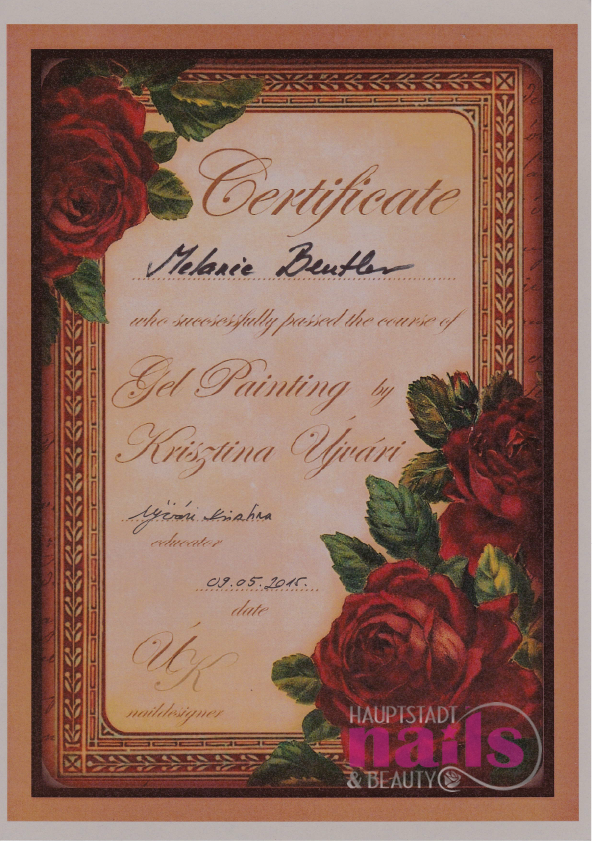 Certificate
Melanie Beutler
who succsessfully passed the course of
Gel Painting by
Krisztina Újvári
Újvári Krisztina
educator
09.05.2015.
date
ÚK
naildesigner
HAUPTSTADT
nails
& BEAUTY